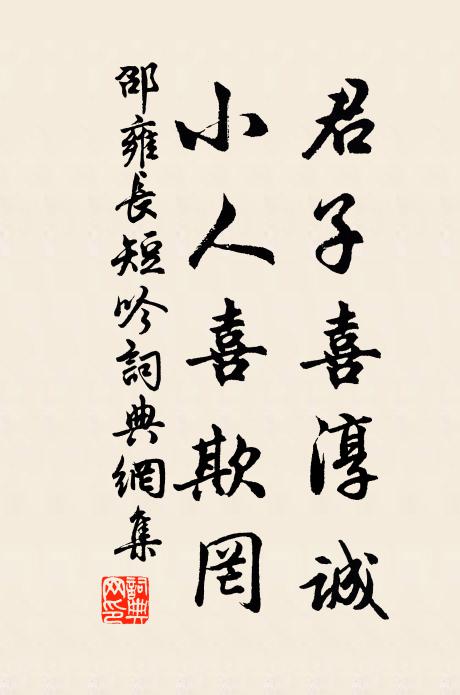 君子喜淳誠
小人喜欺罔
邵雍長短吟詞典網集
詞典网印